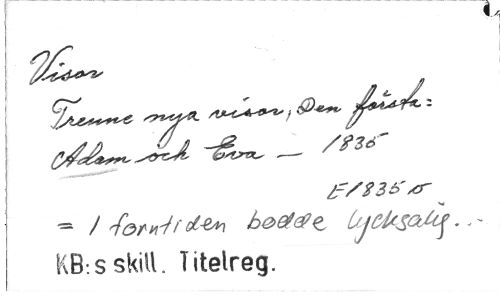 Visor
Trenne nya visor, Den första:
Adam och Eva — 1835
E1835 o
= I forntiden bodde lycksalig...
KB:s skill. Titelreg.